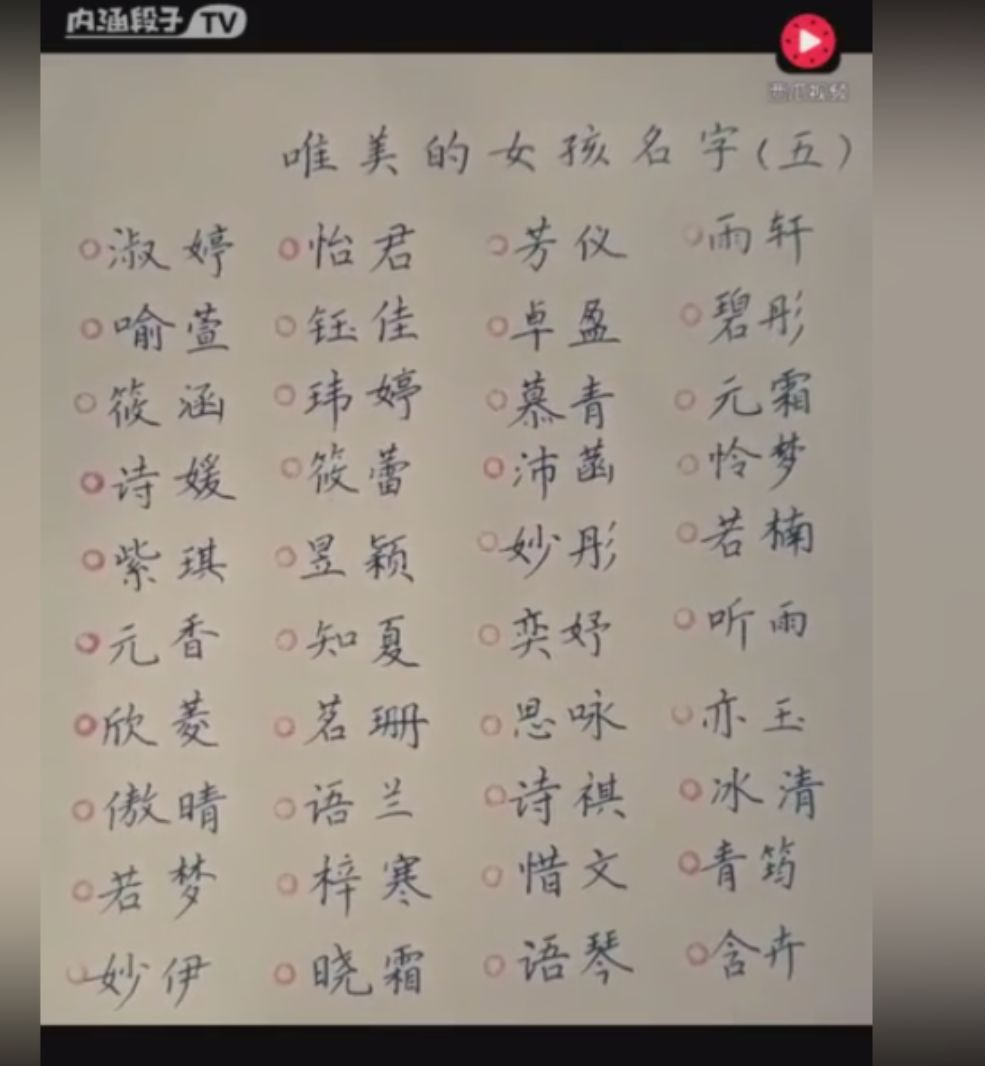 内涵段子TV
西瓜视频
唯美的女孩名字(五)
淑婷 怡君 芳仪 雨轩
喻萱 钰佳 卓盈 碧彤
筱涵 玮婷 慕青 元霜
诗媛 筱蕾 沛菡 怜梦
紫琪 昱颖 妙彤 若楠
元香 知夏 奕妤 听雨
欣菱 茗珊 思咏 亦玉
傲晴 语兰 诗祺 冰清
若梦 梓寒 惜文 青筠
妙伊 晓霜 语琴 含卉